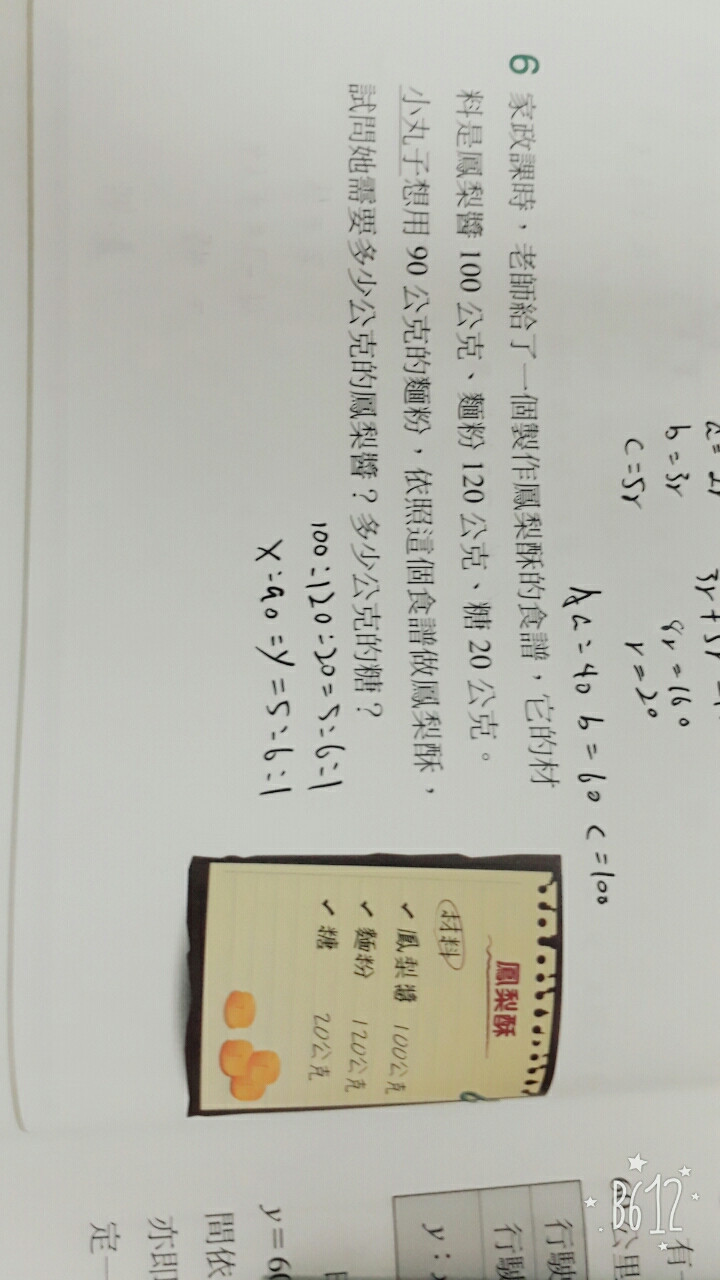 b = 3r
c = 5r
8r = 160
r = 20
a = 40 b = 60 c = 100
6 家政課時,老師給了一個製作鳳梨酥的食譜,它的材
料是鳳梨醬 100 公克、麵粉 120 公克、糖 20 公克。
小丸子想用 90 公克的麵粉,依照這個食譜做鳳梨酥,
試問她需要多少公克的鳳梨醬?多少公克的糖?
100:120:20=5:6:1
x:90:y=5:6:1
鳳梨酥
材料
✓ 鳳梨醬 100公克
✓ 麵粉 120公克
✓ 糖 20公克
有
公里
行駛
行駛
y:
y=60
間依
亦即
定一
B612